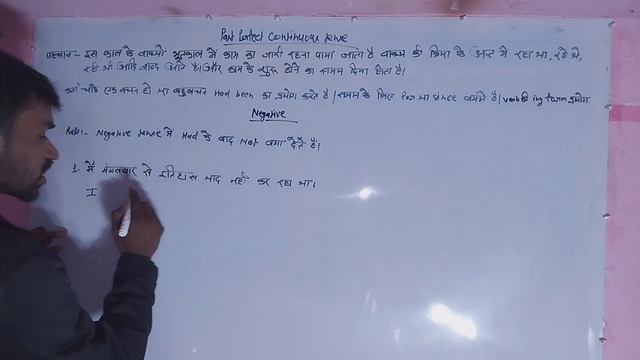 Past Perfect Continuous Tense
पहचान:- इस काल के वाक्यों भूतकाल में काम का जारी रहना पाया जाता है वाक्य की क्रिया के अन्त में रहा था, रहे थे,
रही थी आदि शब्द आते है। और काम के शुरू होने का समय दिया होता है।
कर्ता चाहे एकवचन हो या बहुवचन Had been का प्रयोग करते है। समय के लिए for या since लगाते है। verb की ing term प्रयोग
Negative
Rule:- Negative tense में Had के बाद Not लगा देते हैं।
1. मैं मंगलवार से इतिहास याद नहीं कर रहा था।
I